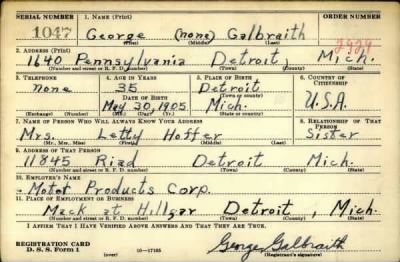 SERIAL NUMBER 1. NAME (Print) ORDER NUMBER
1047 George (none) Galbraith 2929
(First) (Middle) (Last)
2. ADDRESS (Print)
1640 Pennsylvania Detroit, Mich.
(Number and street or R. F. D. number) (Town) (County) (State)
3. TELEPHONE 4. AGE IN YEARS 5. PLACE OF BIRTH 6. COUNTRY OF CITIZENSHIP
none 35 Detroit
DATE OF BIRTH (Town or county)
May 30, 1905 Mich. U.S.A.
(Exchange) (Number) (Mo.) (Day) (Yr.) (State or country)
7. NAME OF PERSON WHO WILL ALWAYS KNOW YOUR ADDRESS 8. RELATIONSHIP OF THAT PERSON
Mrs. Letty Hoffer Sister
(Mr., Mrs., Miss) (First) (Middle) (Last)
9. ADDRESS OF THAT PERSON
11845 Riad Detroit Mich.
(Number and street or R. F. D. number) (Town) (County) (State)
10. EMPLOYER'S NAME
Motor Products Corp.
11. PLACE OF EMPLOYMENT OR BUSINESS
Mack at Hillgar Detroit, Mich.
(Number and street or R. F. D. number) (Town) (County) (State)
I AFFIRM THAT I HAVE VERIFIED ABOVE ANSWERS AND THAT THEY ARE TRUE.
REGISTRATION CARD
D. S. S. Form 1 16—17105 George Galbraith
(over) (Registrant's signature)